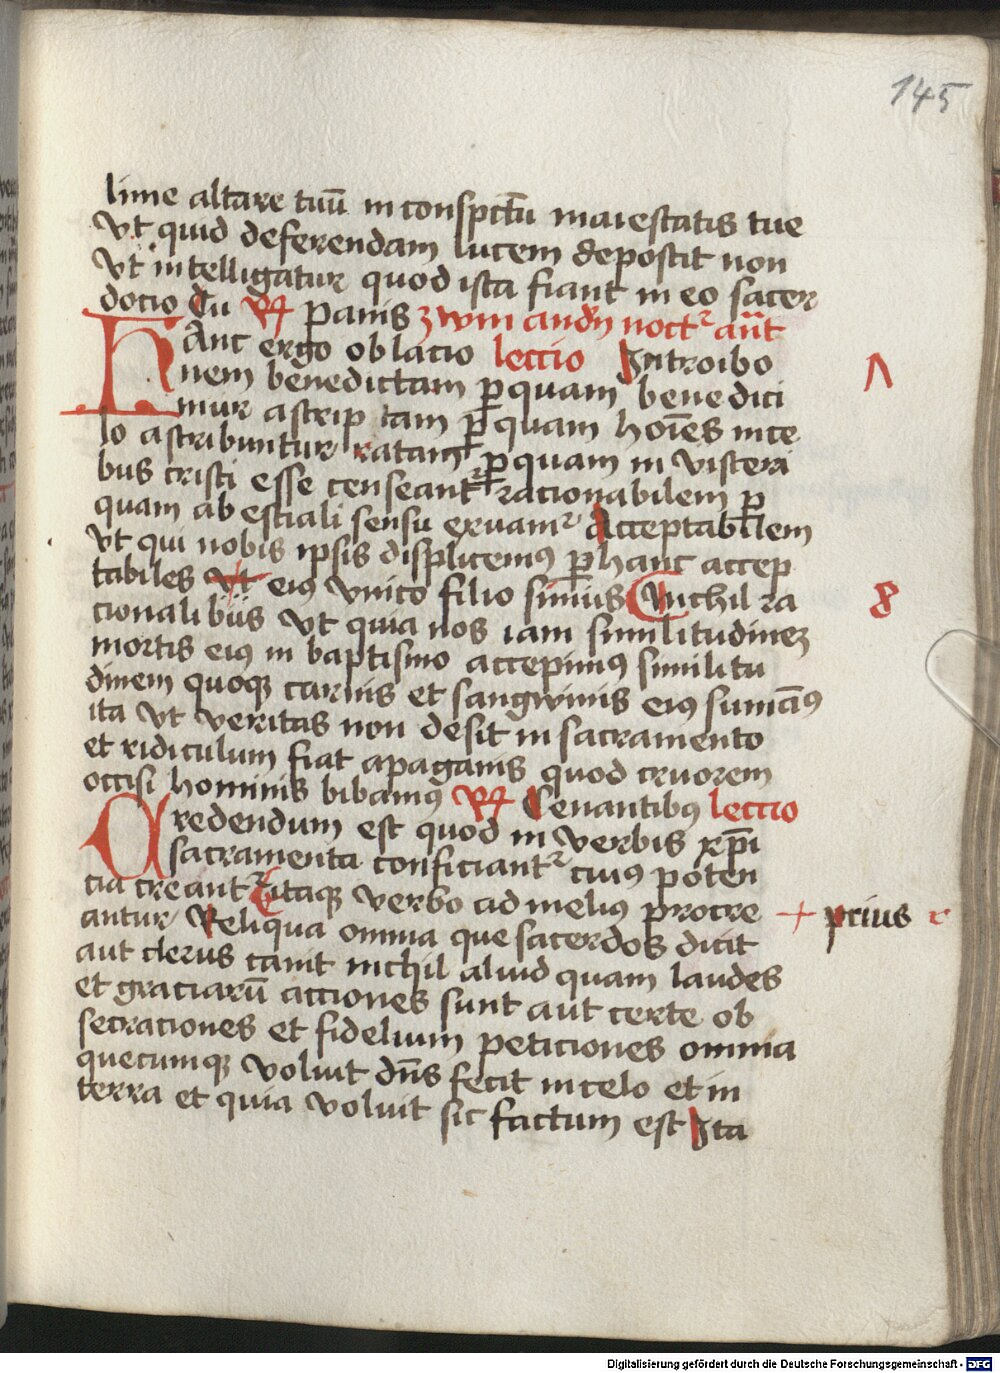 145
lime altare tuū in conspctū maiestatis tue
vt quid deferendam lucem depostit non
vt intelligatur quod ista fiant in eo sacer
docio Tu R Panis zwm andn noctr ant
HAnc ergo oblacio leccio Introibo
nem benedictam ꝑ quam benedici
mur ascrip tam ꝑ quam hoīes in ce
lo ascribuntur ratam ꝑ quam in visceri
bus cristi esse censeantr racionabilem ꝑ
quam ab estiali sensu exuamr Acceptabilem
vt qui nobis ipsis displicemꝰ ꝑ hanc accep
tabiles vt eiꝰ vnico filio simus Nichil ra
cionalibus vt quia nos iam similitudinez
mortis eiꝰ in baptismo accepimꝰ similitu
dinem quoqꝫ carnis et sangwinis eiꝰ sumāꝰ
ita vt veritas non desit in sacramento
et ridiculum fiat apaganis quod cruorem
occisi hominis bibamꝰ R Cenantibꝰ leccio
Credendum est quod in verbis xp̄i
sacramenta conficiantr cuiꝰ poten
cia creantr itaqꝫ verbo ad meliꝰ procre + prius
antur Reliqua omnia que sacerdos dicit
aut clerus canit nichil aliud quam laudes
et graciarū acciones sunt aut certe ob
secraciones et fidelium peticiones omnia
quecumqꝫ voluit dn̄s fecit in celo et in
terra et quia voluit sic factum est Ita
Λ
8
Digitalisierung gefördert durch die Deutsche Forschungsgemeinschaft - DFG